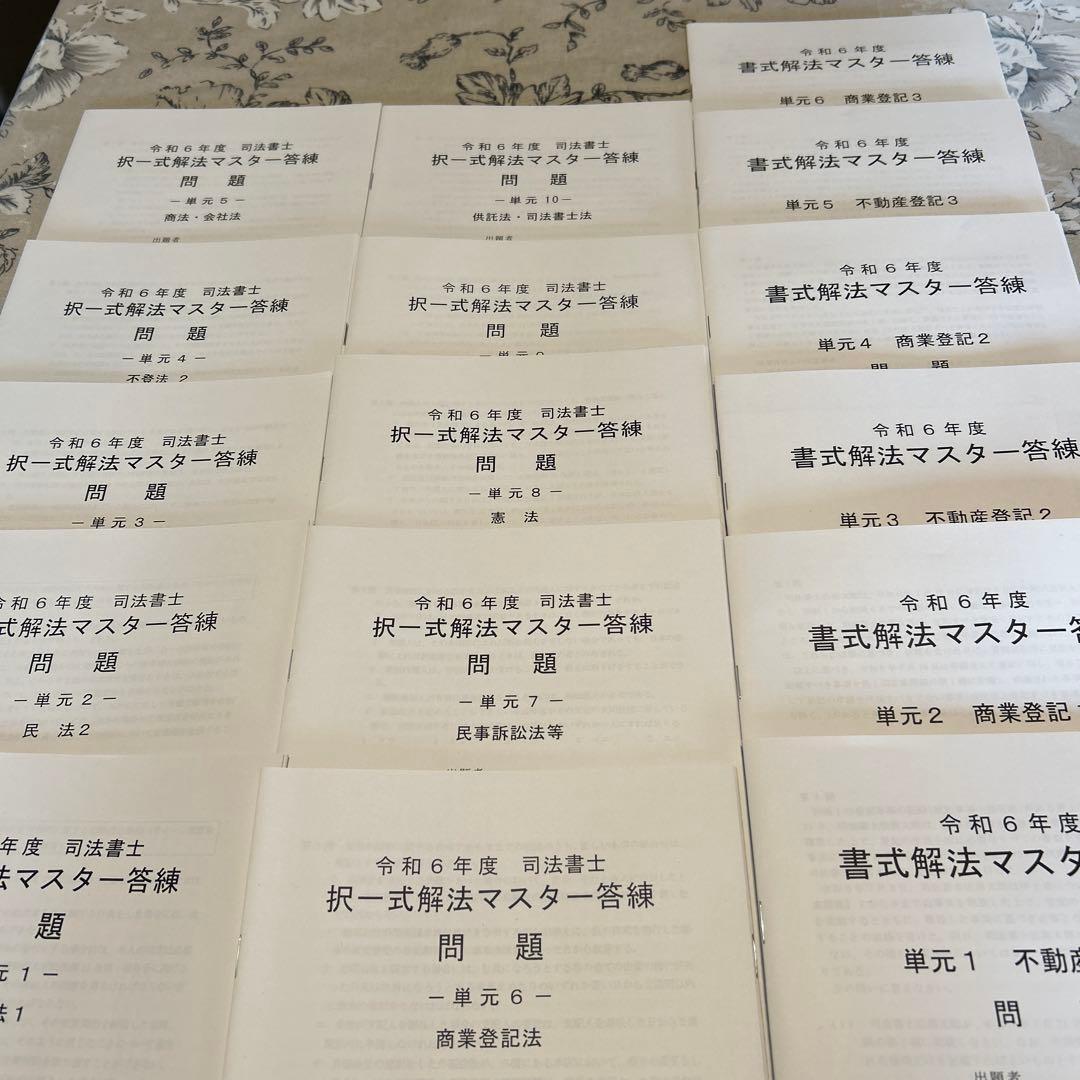 令和6年度 司法書士
択一式解法マスター答練
問 題
－単元5－
商法・会社法
出題者
令和6年度 司法書士
択一式解法マスター答練
問 題
－単元4－
不登法2
令和6年度 司法書士
択一式解法マスター答練
問 題
－単元3－
令和6年度 司法書士
式解法マスター答練
問 題
－単元2－
民 法2
年度 司法書士
法マスター答練
題
元1－
法1
令和6年度 司法書士
択一式解法マスター答練
問 題
－単元10－
供託法・司法書士法
出題者
令和6年度 司法書士
択一式解法マスター答練
問 題
令和6年度 司法書士
択一式解法マスター答練
問 題
－単元8－
憲 法
令和6年度 司法書士
択一式解法マスター答練
問 題
－単元7－
民事訴訟法等
令和6年度 司法書士
択一式解法マスター答練
問 題
－単元6－
商業登記法
令和6年度
書式解法マスター答練
単元6 商業登記3
令和6年度
書式解法マスター答練
単元5 不動産登記3
令和6年度
書式解法マスター答練
単元4 商業登記2
問 題
令和6年度
書式解法マスター答練
単元3 不動産登記2
令和6年度
書式解法マスター答
単元2 商業登記1
令和6年度
書式解法マスタ
単元1 不動産
問
出題者